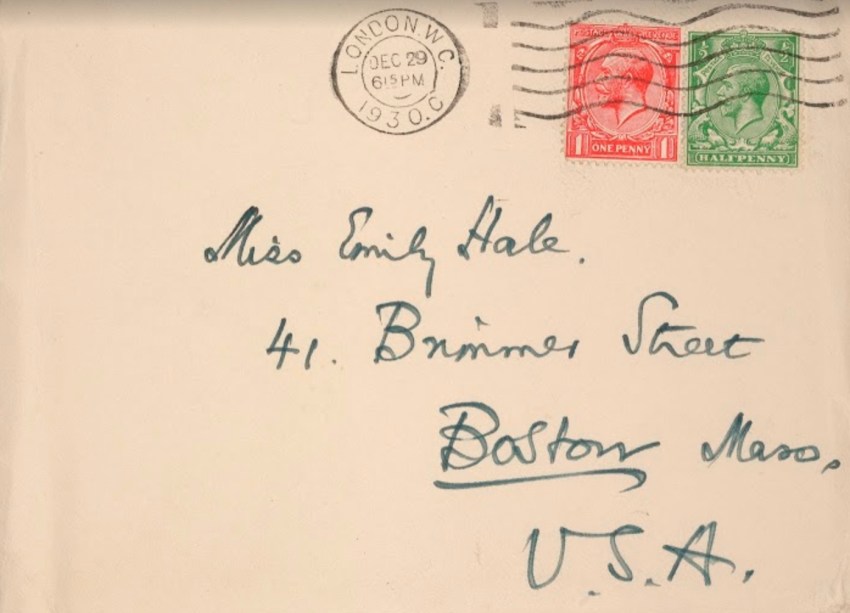 LONDON.W.C.
DEC 29
6 15 PM
1930.C
POSTAGE REVENUE
1 ONE PENNY 1
½ ½
HALFPENNY
Miss Emily Hale.
41. Brimmer Street
Boston Mass.
U.S.A.